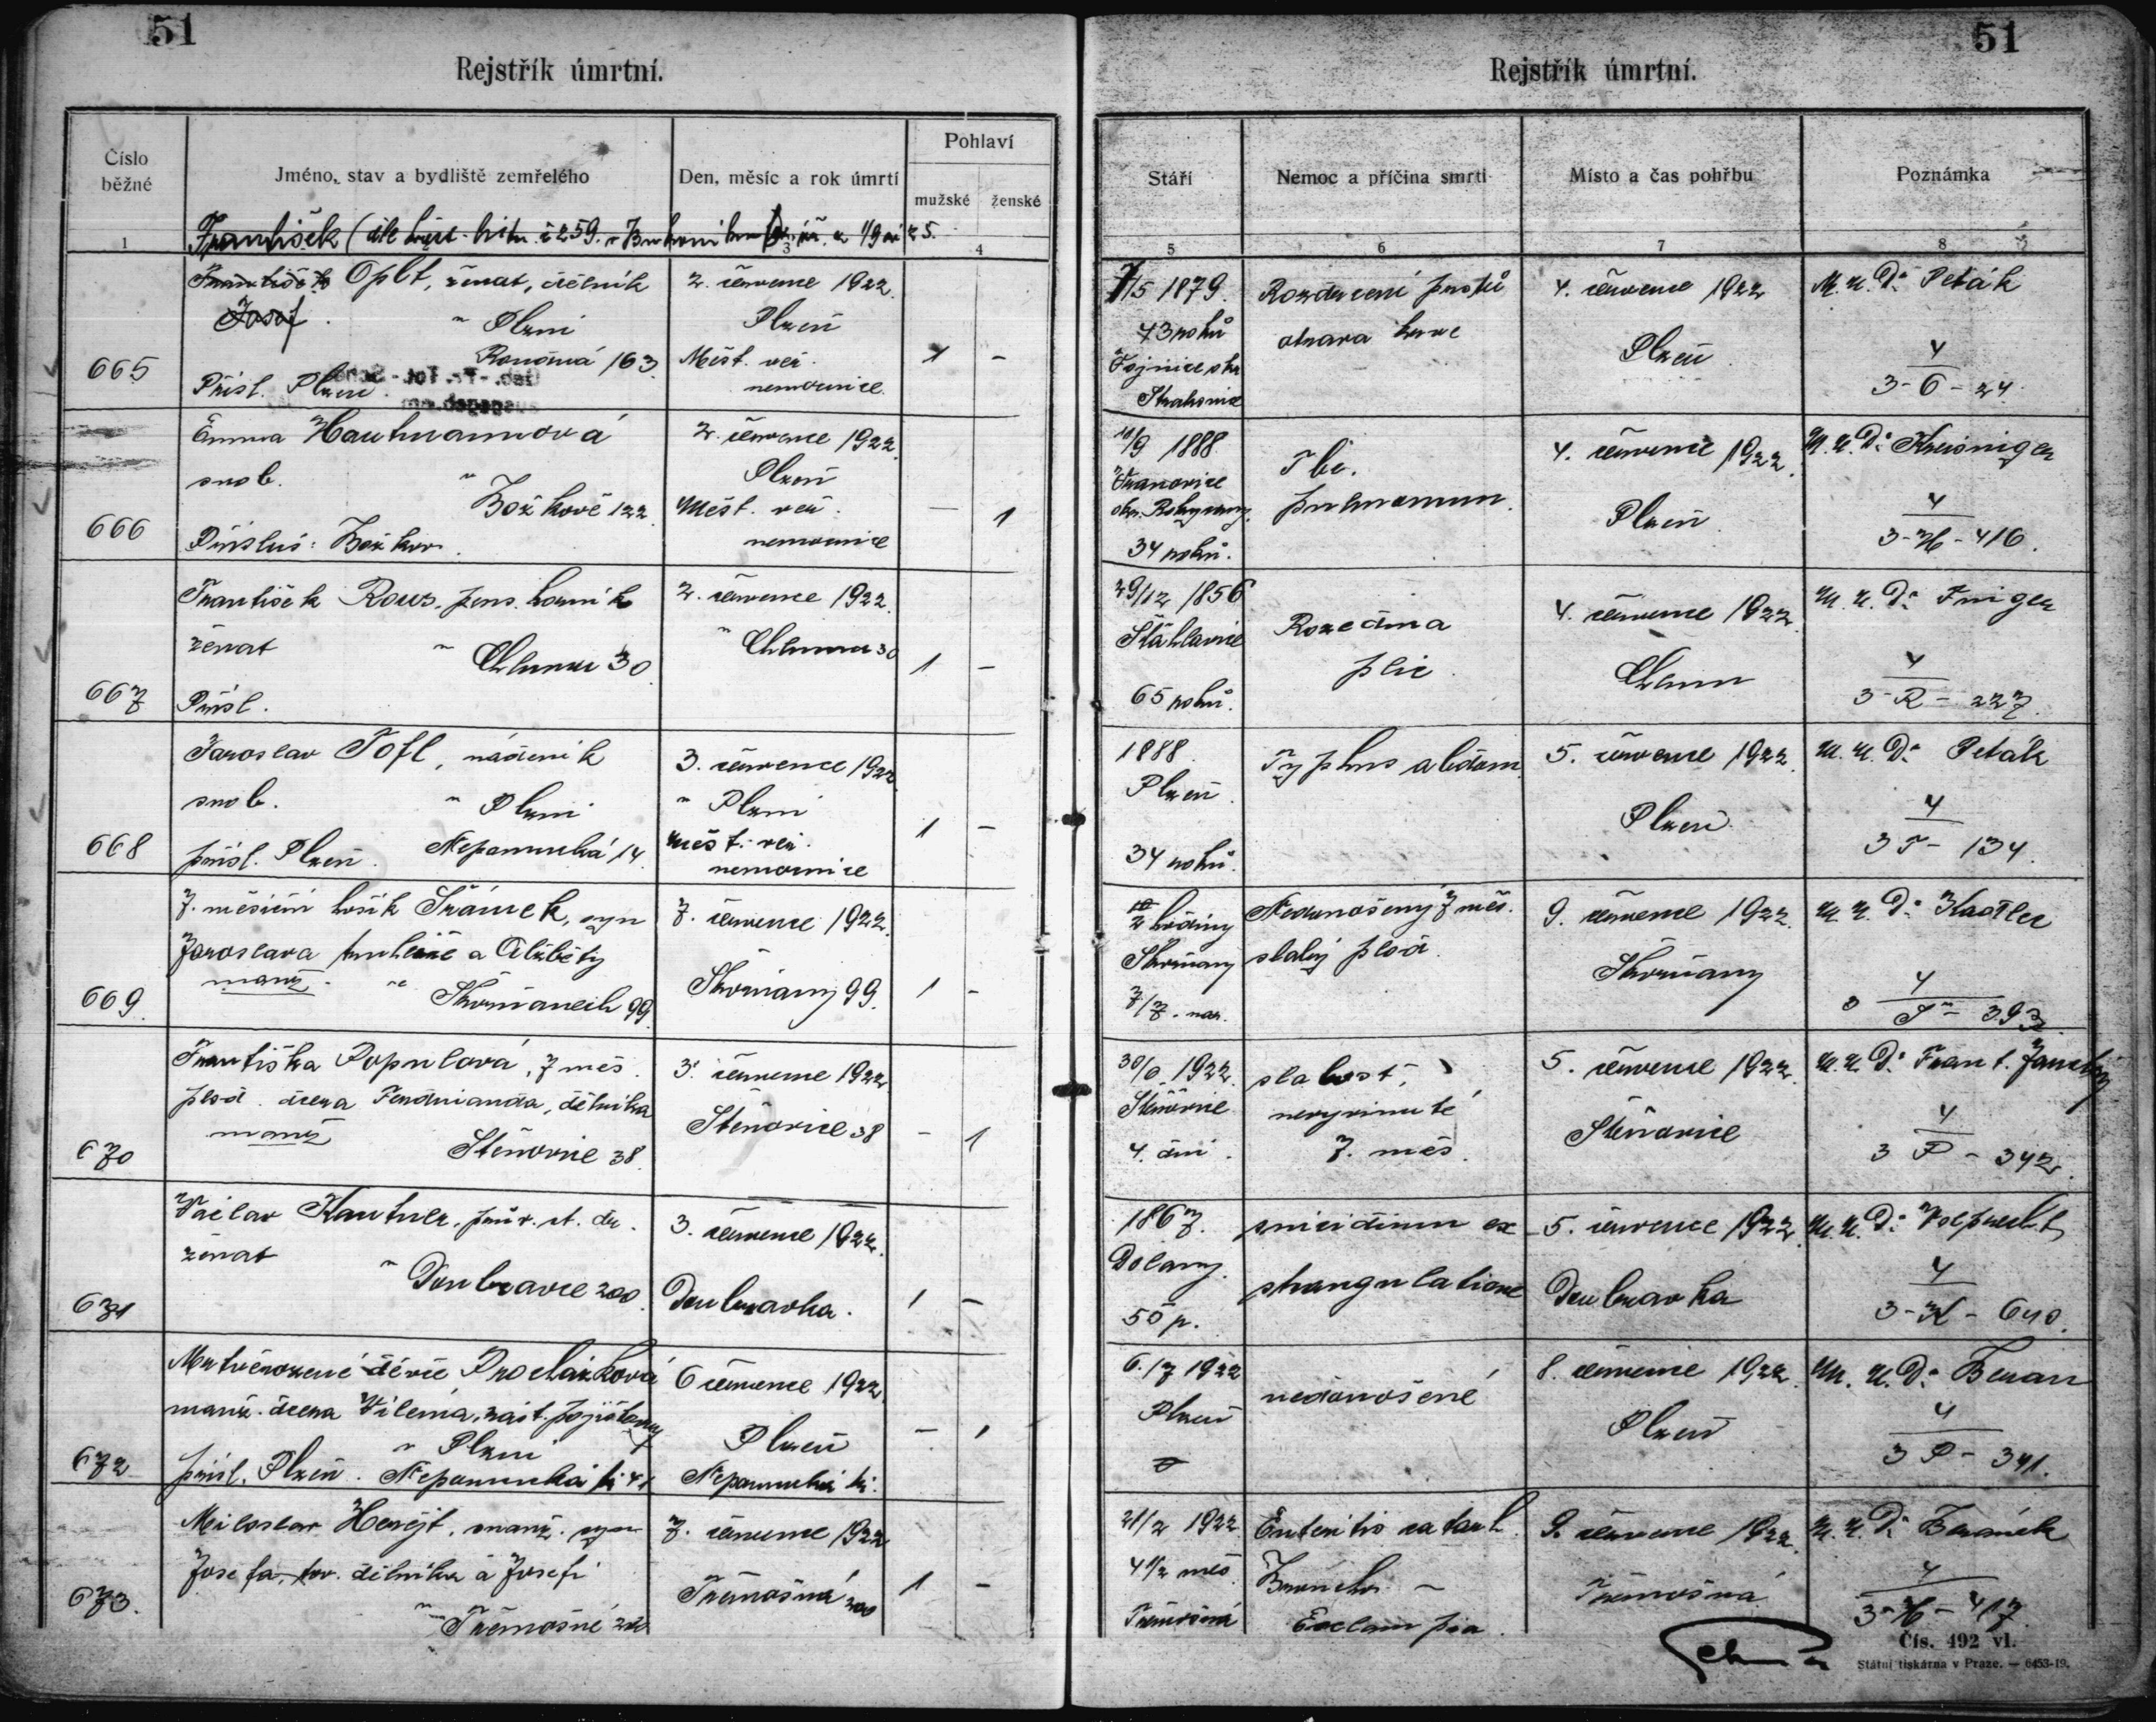 51
Rejstřík úmrtní.
Číslo běžné
Jméno, stav a bydliště zemřelého
Den, měsíc a rok úmrtí
Pohlaví
mužské
ženské
1
3
4
František
František Oplt, ženat, dělník
Josef
v Plzni
163
Přísl. Plzeň
665
2. července 1922
Plzeň
Měst. veř.
nemocnice
1
-
Emma Hautmannová
svob.
v Božkově 122
Přísluš: Božkov
666
2. července 1922
Plzeň
Měst. veř.
nemocnice
-
1
František Rous, pens. horník
ženat
v Chlumu 30
Přísl.
667
2. července 1922
v Chlumu 30
1
-
Jaroslav Tofl, nádeník
svob.
v Plzni
přísl. Plzeň. Nepomucká 14
668
3. července 1922
v Plzni
měst. veř.
nemocnice
1
-
7. měsíční hošík Šrámek, syn
Jaroslava truhláře a Alžběty
manž. ve Skvrňanech 99
669.
7. července 1922
Skvrňany 99.
1
-
Františka Populová, 7 měs.
plod. dcera Ferdinanda, dělníka
manž
Štěnovice 38.
670
3. července 1922
Štěnovice 38
-
1
Václav
ženat
v Doubravce 200
671
3. července 1922
Doubravka.
1
-
Mrtvěrozené děvče Procházková
manž. dcera Viléma, zást. pojišťovny
v Plzni
přísl. Plzeň. Nepomucká tř. 41
672
6 července 1922
Plzeň
Nepomucká tř.
-
1
Miloslav Herejt, manž. syn
Josefa, tov. dělníka a Josefi
v Třemošné 200
673.
7. července 1922
Třemošná 200
1
-
51
Rejstřík úmrtní.
Stáří
Nemoc a příčina smrti
Místo a čas pohřbu
Poznámka
5
6
7
8
7/5 1879.
43 roků
Strakonice
4. července 1922
Plzeň
M. U. Dr Peták
4
3-O-24
1888.
okr. Rokycany
34 roků.
Tbc.
pulmonum.
4. července 1922
Plzeň
M. U. Dr
4
3-H-416.
29/12 1856
Šťáhlavice
65 roků.
Rozedma
plic
4. července 1922
Chlum
M. U. Dr
4
3-R-227.
1888
Plzeň
34 roků.
Typhus abdom.
5. července 1922
Plzeň
M. U. Dr Peták
4
3 T - 134.
2 hodiny
Skvrňany
7/7. nar.
Nedonošený 7 měs.
slabý plod.
9. července 1922
Skvrňany
M. U. Dr
4
3 Š - 393.
30/6 1922.
Štěnovice
4. dní.
slabost,
nevyvinuté
7. měs.
5. července 1922
Štěnovice
M. U. Dr Frant.
4
3 P - 342.
1867.
Dolany.
55 r.
suicidium ex
strangulatione
5. července 1922
Doubravka
M. U. Dr Volprecht
4
3-K-640.
6./7 1922
Plzeň
nedonošené
8. července 1922
Plzeň
M. U. Dr Beran
4
3 P - 341.
21/2 1922
4 1/2 měs
Třemošná
Enteritis catarh.
Broncho -
Eclampsia.
9. července 1922
Třemošná
M. U. Dr Beránek
4
3-H-417
Čís. 492 vl.
Státní tiskárna v Praze. — 6453-19.